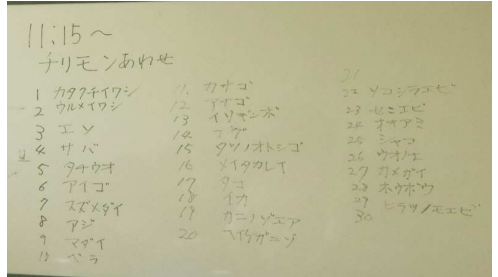 11:15〜
チリモンあわせ
1 カタクチイワシ
2 ウルメイワシ
3 エソ
4 サバ
5 タチウオ
6 アイゴ
7 スズメダイ
8 アジ
9 マダイ
10 ベラ
11. カサゴ
12 アナゴ
13 イソギンポ
14 フグ
15 タツノオトシゴ
16 メイタガレイ
17 タコ
18 イカ
19 カニノゾエア
20
21
22 ソコシラエビ
23 セミエビ
24 オキアミ
25 シャコ
26 ウオノエ
27 カメガイ
28 ホウボウ
29 ヒラツノモエビ
30